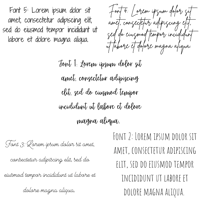 Font 5: Lorem ipsum dolor sit
amet, consectetur adipiscing elit,
sed do eiusmod tempor incididunt ut
labore et dolore magna aliqua.
Font 4: Lorem ipsum dolor sit
amet, consectetur adipiscing elit,
sed do eiusmod tempor incididunt
ut labore et dolore magna aliqua.
Font 1: Lorem ipsum dolor sit
amet, consectetur adipiscing
elit, sed do eiusmod tempor
incididunt ut labore et dolore
magna aliqua.
Font 3: Lorem ipsum dolor sit
amet, consectetur adipiscing elit,
sed do eiusmod tempor
incididunt ut labore et dolore
magna aliqua.
Font 2: Lorem ipsum dolor sit
amet, consectetur adipiscing
elit, sed do eiusmod tempor
incididunt ut labore et
dolore magna aliqua.